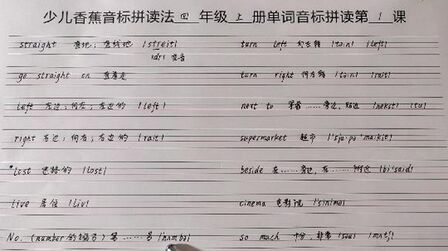 少儿香蕉音标拼读法 四 年级 上 册单词音标拼读第 1 课
straight 直地；直线地 |streit|
|dr| 变音
go straight on 直着走
left 左边；向左；左边的 |left|
right 右边；向右；右边的 |rait|
*lost 迷路的 |lost|
live 居住 |liv|
No. (number的缩写) 第……号 |nʌmbə|
turn left 向左转 |tə:n| |left|
turn right 向右转 |tə:n| |rait|
next to 紧靠……旁边，贴近 |nekst| |tu|
supermarket 超市 |'sju:pə'ma:kit|
beside 在……旁边，在……附近 |bi'said|
cinema 电影院 |'sinimə|
so much 十分，非常 |səu| |mʌtʃ|